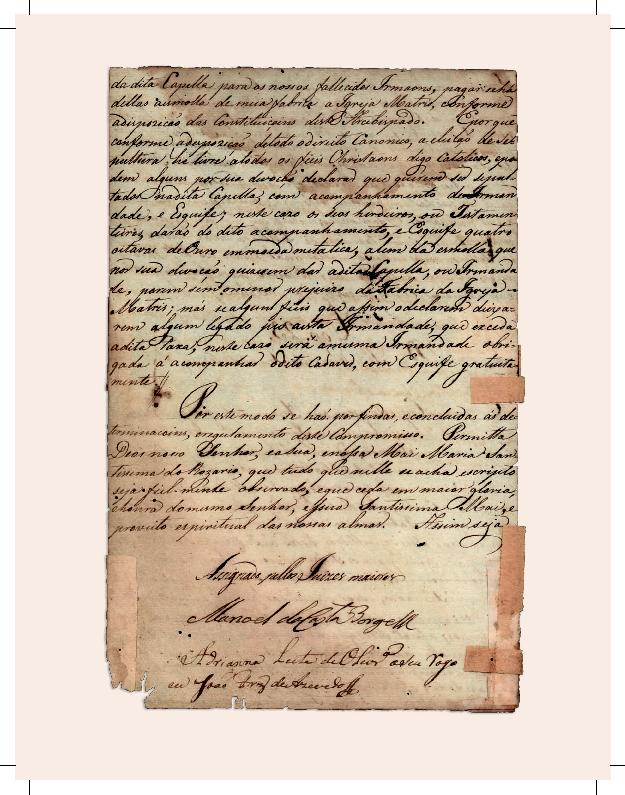 da dita Capella para os nossos fallecidos Irmaons, pagar seha
dellas aesmolla de meia fabrica a Igreja Matris, conforme
adispozicaõ das Constituicoins deste Arcebispado. E porque
conforme adispozicaõ detodo odireito Canonico, a eleicaõ de Se
pultura he livre atodos os fieis Christaons digo Catolicos, e po
dem alguns por sua devocaõ declarar que querem ser sepul
tados nadita Capella, com acompanhamento da Irman
dade, e Esquife; neste cazo os seos herdeiros, ou Testamen
teiros, daraõ do dito acompanhamento, e Esquife quatro
oitavas de Ouro emmoeda metalica, alem da esmolla que
por sua devocaõ quizerem dar adita Capella, ou Irmanda
de, porem sem omenor prejuizo da Fabrica da Igreja
Matris; más se algum fieis que assim odeclarem deixa
rem algum legado pio aesta Irmandade, que exceda
adita Taxa, neste cazo será amesma Irmandade obri
gada á acompanhar odito Cadaver, com Esquife gratuita
mente //
Por este modo se haõ por findas, e concluidas as de
terminacoins, eregulamento deste Compromisso. Permitta
Deos nosso Senhor, e a sua, enossa Mai Maria San
tissima do Rozario, que tudo que nelle se acha escripto
seja fiel-mente observado, eque ceda em maior gloria,
ehonra do mesmo Senhor, e sua Santissima Mai, e
proveito espiritual das nossas almas. Assim seja
Assignado pellos Juizes maiores
Manoel da Costa Borges
Adrianna Leite de Olivrª a seu rogo
eu João de Azevedo